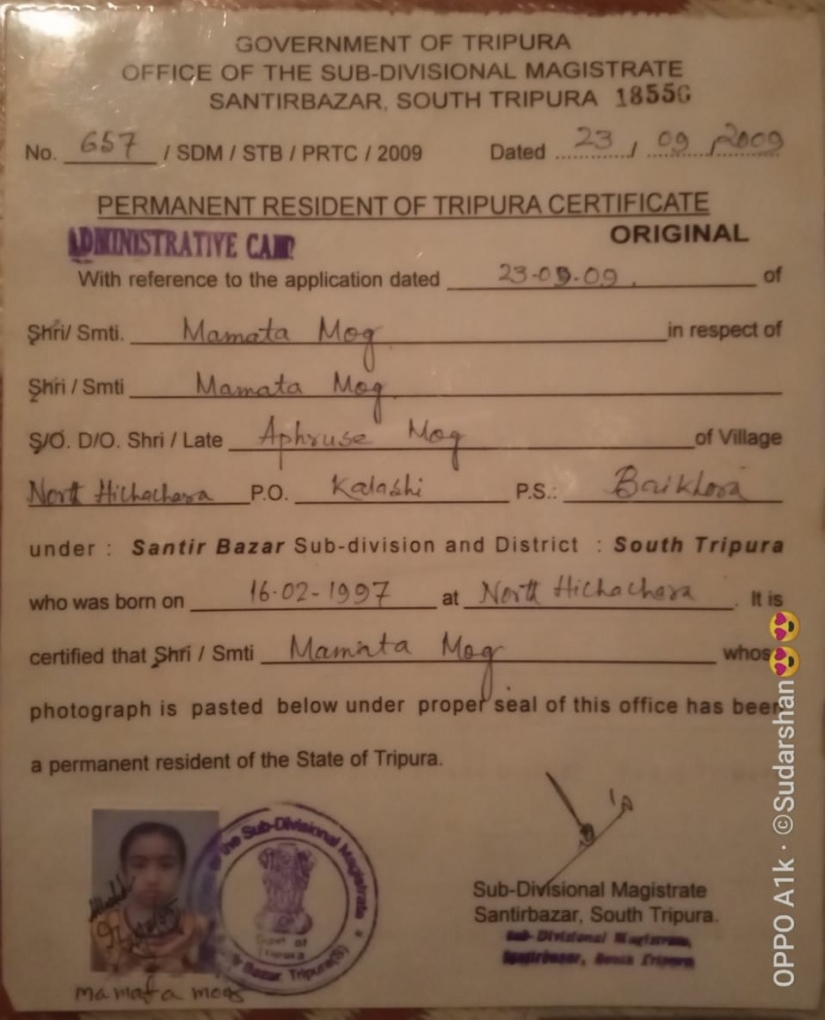 GOVERNMENT OF TRIPURA
OFFICE OF THE SUB-DIVISIONAL MAGISTRATE
SANTIRBAZAR, SOUTH TRIPURA 18556
No. 657 / SDM / STB / PRTC / 2009 Dated 23 / 09 / 2009
PERMANENT RESIDENT OF TRIPURA CERTIFICATE
ADMINISTRATIVE CAMP ORIGINAL
With reference to the application dated 23-09-09. of
Shri/ Smti. Mamata Mog in respect of
Shri / Smti Mamata Mog
S/O. D/O. Shri / Late Aphruse Mog of Village
North Hichachara P.O. Kalashi P.S.: Baikhora
under : Santir Bazar Sub-division and District : South Tripura
who was born on 16-02-1997 at North Hichachara. It is
certified that Shri / Smti Mamata Mog whos
photograph is pasted below under proper seal of this office has been
a permanent resident of the State of Tripura.
the Sub-Divisional Magistrate
Govt of
Tripura
Bazar Tripura(S)
mamata mog
Sub-Divisional Magistrate
Santirbazar, South Tripura.
Sub-Divisional Magistrate,
Santirbazar, South Tripura
OPPO A1k · ©Sudarshan😍😍